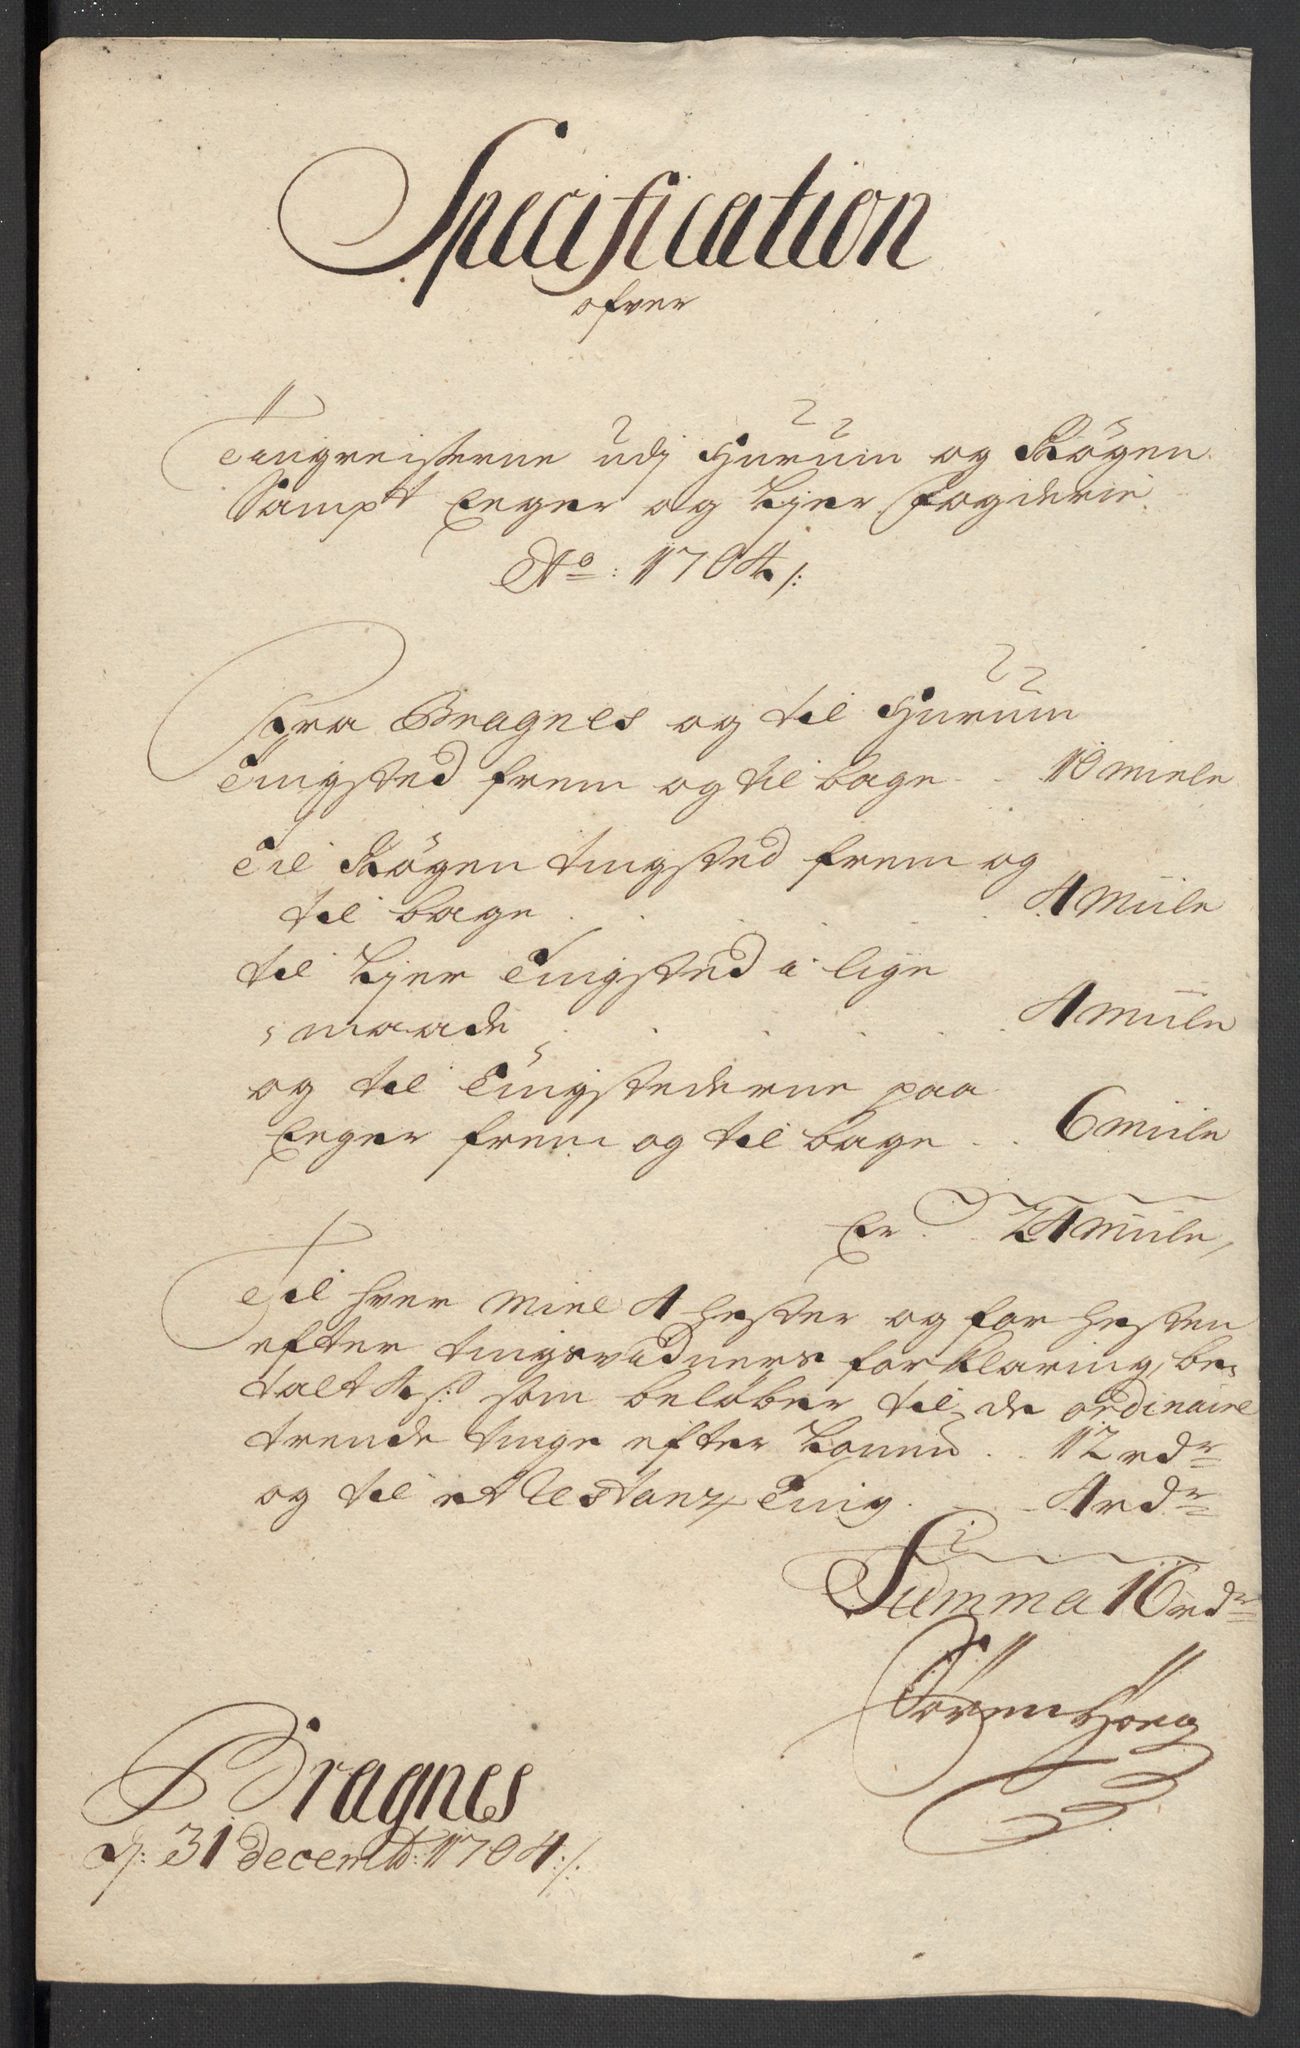 Specification
ofver
Tingreiserne udj Hurum og Rögen
Sampt Eeger og Lier Fogderie
Ao: 1704/:
Fra Bragnes og til Hurum
Tingsted frem og til bage .. 10 miele
Til Rögen tingsted frem og
til bage . . . . . 4 Miile
til Lier Tingsted i lige
maade . . . . . 4 Miile
og til Tingstederne paa
Eeger frem og til bage .. 6 miile
Er .. 24 Miile,
Til hver Miel 4 hester og for hesten
efter tingsvidners forklaring, be-
talt 4 s: som beløber til de ordinaire
trende tinge efter Louen .. 12 rdr
og til et Ting . . 4 rdr
Summa 16 rdr
Sören Hoeg
Bragnes
d: 31 decemb: 1704:/: